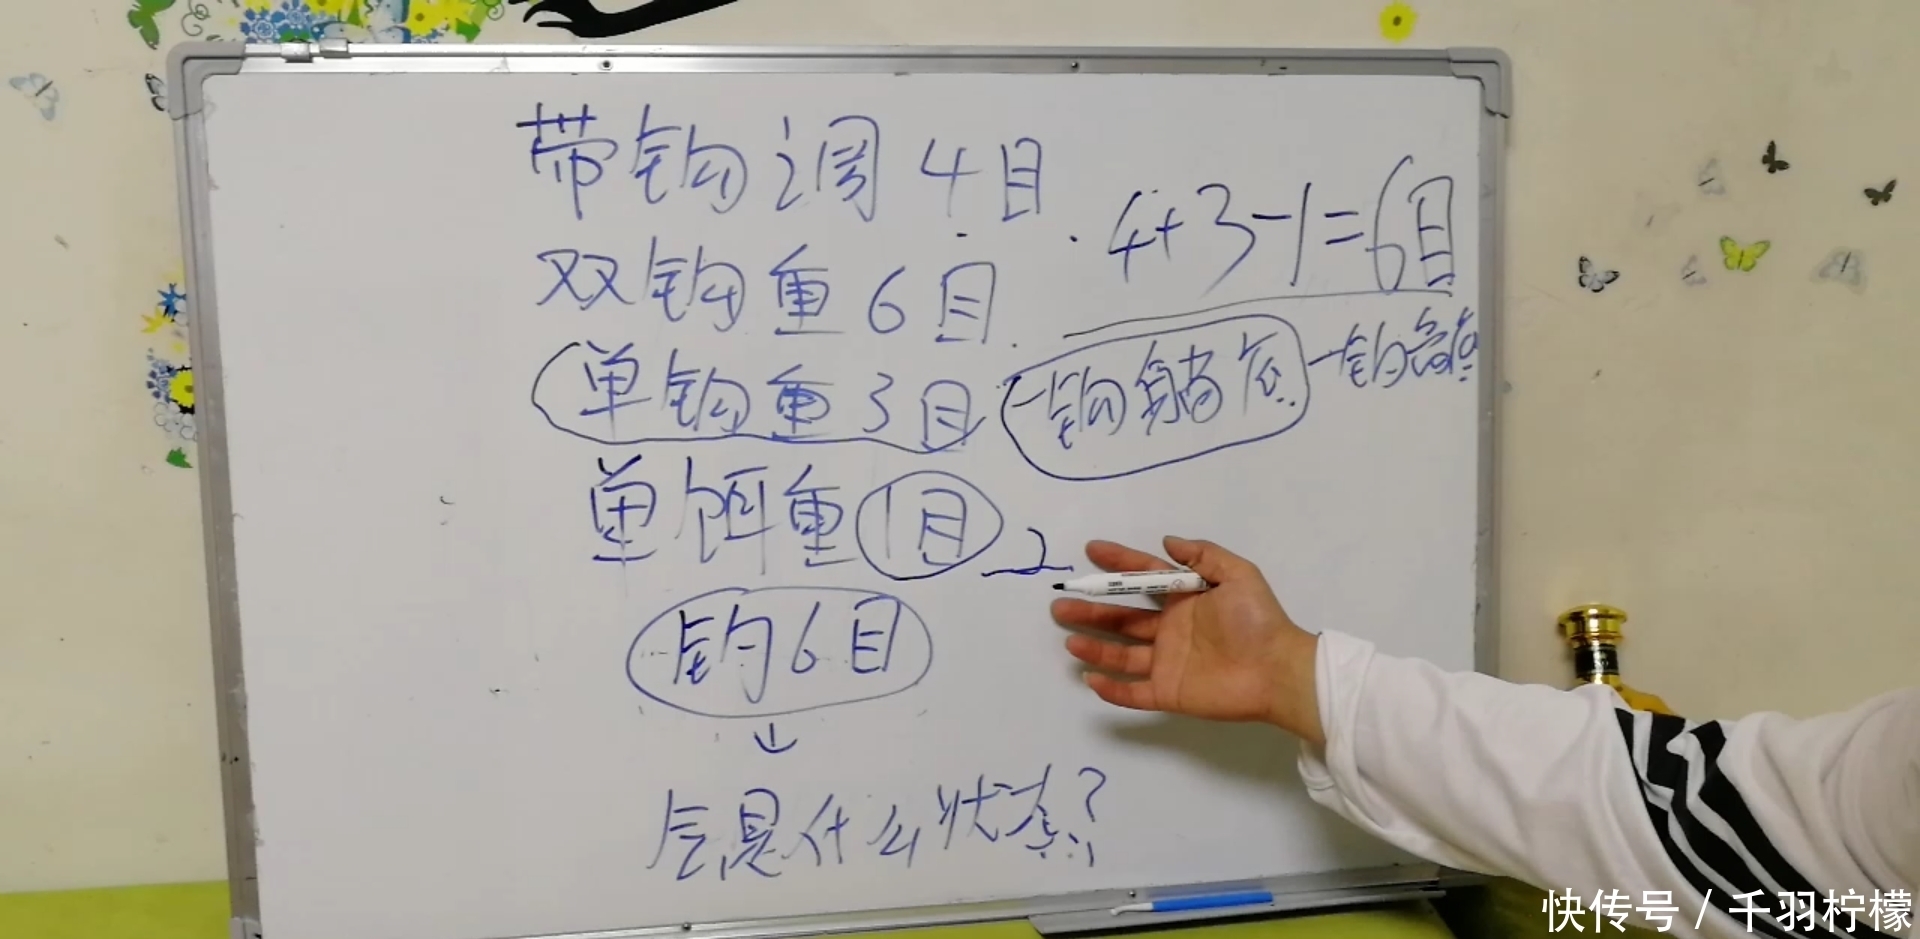 带钩调4目
4+3-1=6目
双钩重6目
单钩重3目
一钩躺底 一钩离底
单饵重1目
2
钓6目
是什么状态?
快传号 / 千羽柠檬